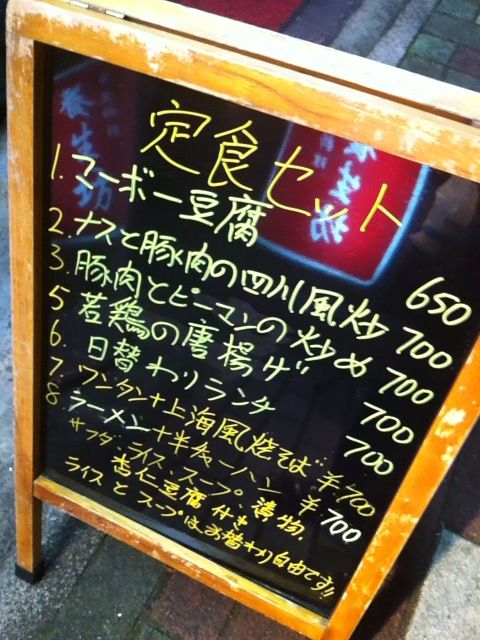 定食セット
1. マーボー豆腐 650
2. ナスと豚肉の四川風炒 700
3. 豚肉とピーマンの炒め 700
5 若鶏の唐揚げ 700
6. 日替わりランチ 700
7. ワンタン+上海風焼そば ¥700
8. ラーメン+半チャーハン ¥700
サラダ、ライス、スープ、漬物、
杏仁豆腐付き
ライスとスープはお替わり自由です!!
養生坊
養生坊